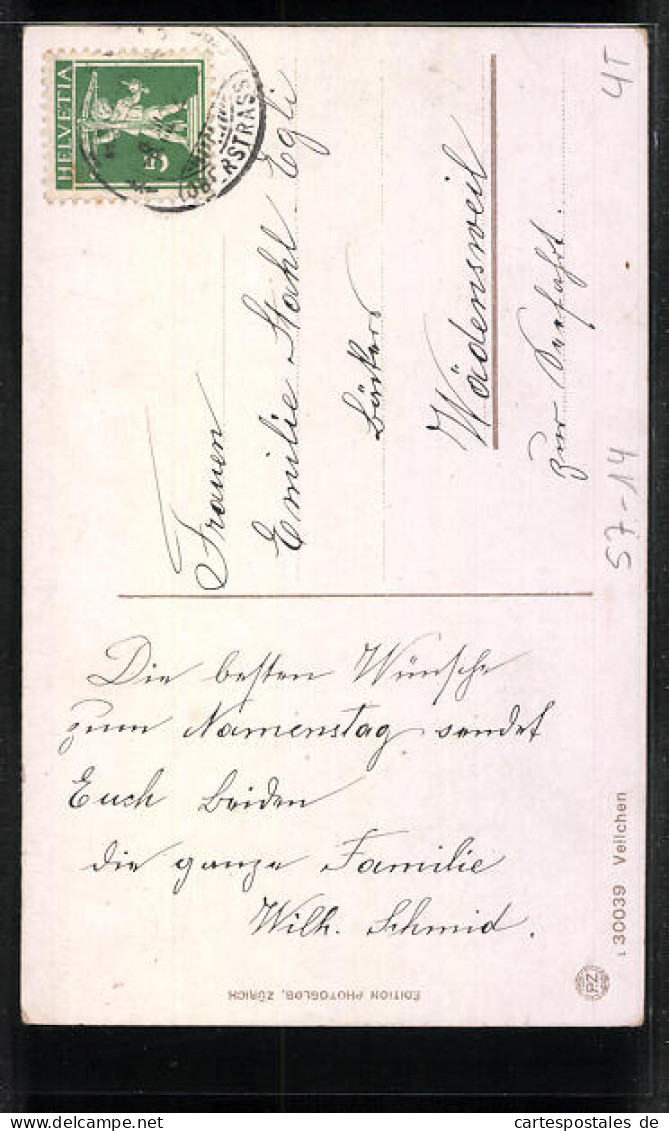 HELVETIA
5
OBERSTRASS
Frauen
Emilie Stahl-Egli
Bäckers
Wädensweil
zur Seefahrt.
Die besten Wünsche
zum Namenstag sendet
Euch beiden
die ganze Familie
Wilh. Schmid.
EDITION PHOTOGLOB, ZÜRICH
PZ
1 30039 Veilchen
4T
57-14
www.oldthing.de
cartespostales de